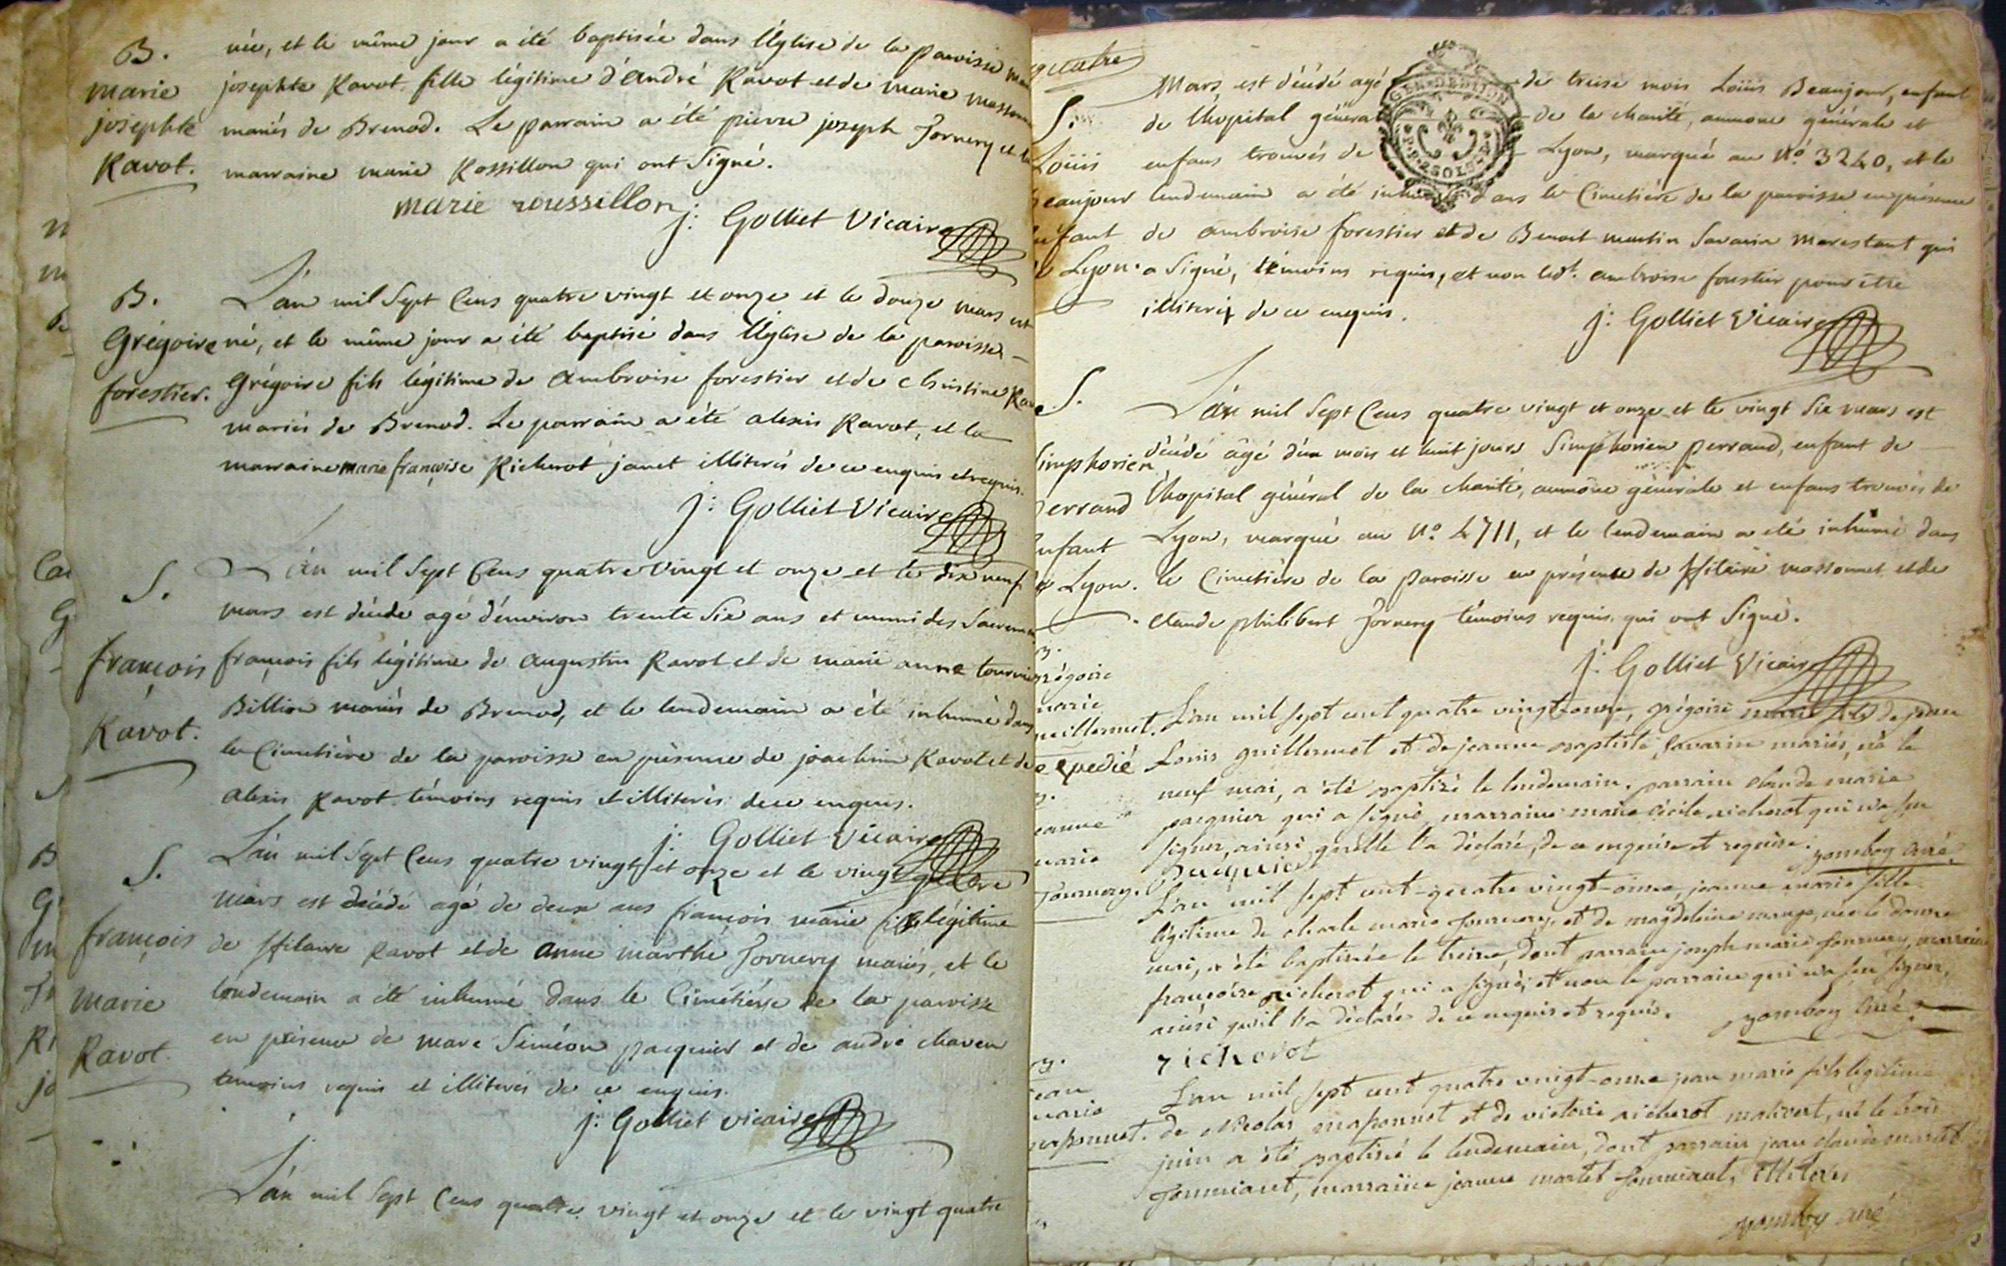 B.
marie
josephte
Ravot.
née, et le même jour a été baptisée dans l'Église de la paroisse
josephte Ravot fille légitime d'andré Ravot et de marie
mariés de Brenod. Le parrain a été pierre joseph Jornery et la
marraine marie Rossillon qui ont Signé.
marie roussillon
j: Golliet Vicaire
B.
Grégoire
forestier.
L'an mil Sept Cens quatre vingt et onze et le douze mars est
né, et le même jour a été baptisé dans l'Église de la paroisse
Grégoire fils légitime de ambroise forestier et de christine
mariés de Brenod. Le parrain a été alexis Ravot, et la
marraine marie françoise Richerot janet illiterés de ce enquis et requis.
j: Golliet Vicaire
S.
françois
Ravot.
L'an mil Sept Cens quatre Vingt et onze et le dix neuf
mars est décédé agé d'environ trente Six ans et muni des
françois fils légitime de augustin Ravot et de marie anne
Billion mariés de Brenod, et le lendemain a été inhumé dans
le Cimetière de la paroisse en présence de joachim Ravot et de
alexis Ravot témoins requis et illiterés de ce enquis.
j: Golliet Vicaire
S.
françois
marie
Ravot.
L'an mil Sept Cens quatre vingt et onze et le vingt quatre
mars est décédé agé de deux ans françois marie fils légitime
de Hilaire Ravot et de anne marthe Jornery mariés, et le
lendemain a été inhumé dans le Cimetière de la paroisse
en présence de marc Siméon pacquier et de andré
temoins requis et illiterés de ce enquis.
j: Golliet vicaire
L'an mil Sept Cens quatre vingt et onze et le vingt quatre
S.
Loüis
eaujour
nfant
Lyon.
Mars est décédé agé de treise mois Loüis Beaujour, enfant
de l'hopital général de la charité, aumone générale et
enfans trouvés de Lyon, marqué au No. 3240, et le
lendemain a été dans le Cimetière de la paroisse en présence
de ambroise forestier et de Benoit martin Savarin Marestant qui
a Signé, témoins requis, et non led.t ambroise forestier pour être
illiteré de ce enquis.
GEN. DE DIJON
j: Golliet Vicaire
S.
Simphorien
errand
nfant
Lyon.
L'an mil Sept Cens quatre vingt et onze et le vingt Six mars est
décédé âgé d'un mois et huit jours Simphorien perrand, enfant de
l'hopital général de la charité, aumône générale et enfans trouvés de
Lyon, marqué au No. 4711, et le lendemain a été inhumé dans
le Cimetière de la paroisse en présence de Hilaire massonnet et de
claude philibert Jornery témoins requis qui ont Signé.
j: Golliet Vicaire
régoire
marie
uillermet.
L'an mil sept cent quatre vingt-onze, grégoire marie fils de jean
Louis guillermet et de jeanne baptiste Savarin mariés, né le
neuf mai, a été baptisé le lendemain. parrain claude marie
pacquier qui a signé, marraine marie cécile richerot qui n'a su
signer, ainsi qu'elle l'a déclaré, de ce enquise et requise.
Pacquier
L'an mil sept cent-quatre vingt-onze jeanne marie fille
légitime de charle marie Jornery, et de magdelaine née le douze
mai, a été baptisée le treize, dont parrain joseph marie Jornery, marraine
françoise richerot qui a signé, et non le parrain qui n'a su signer,
ainsi qu'il l'a déclaré de ce enquis et requis.
richerot
L'an mil sept cent quatre vingt-onze jean marie fils légitime
de Nicolas massonnet et de victoire richerot malivert, né le trois
juin a été baptisé le lendemain, dont parrain jean claude martel
marraine jeanne martel illiterés
curé